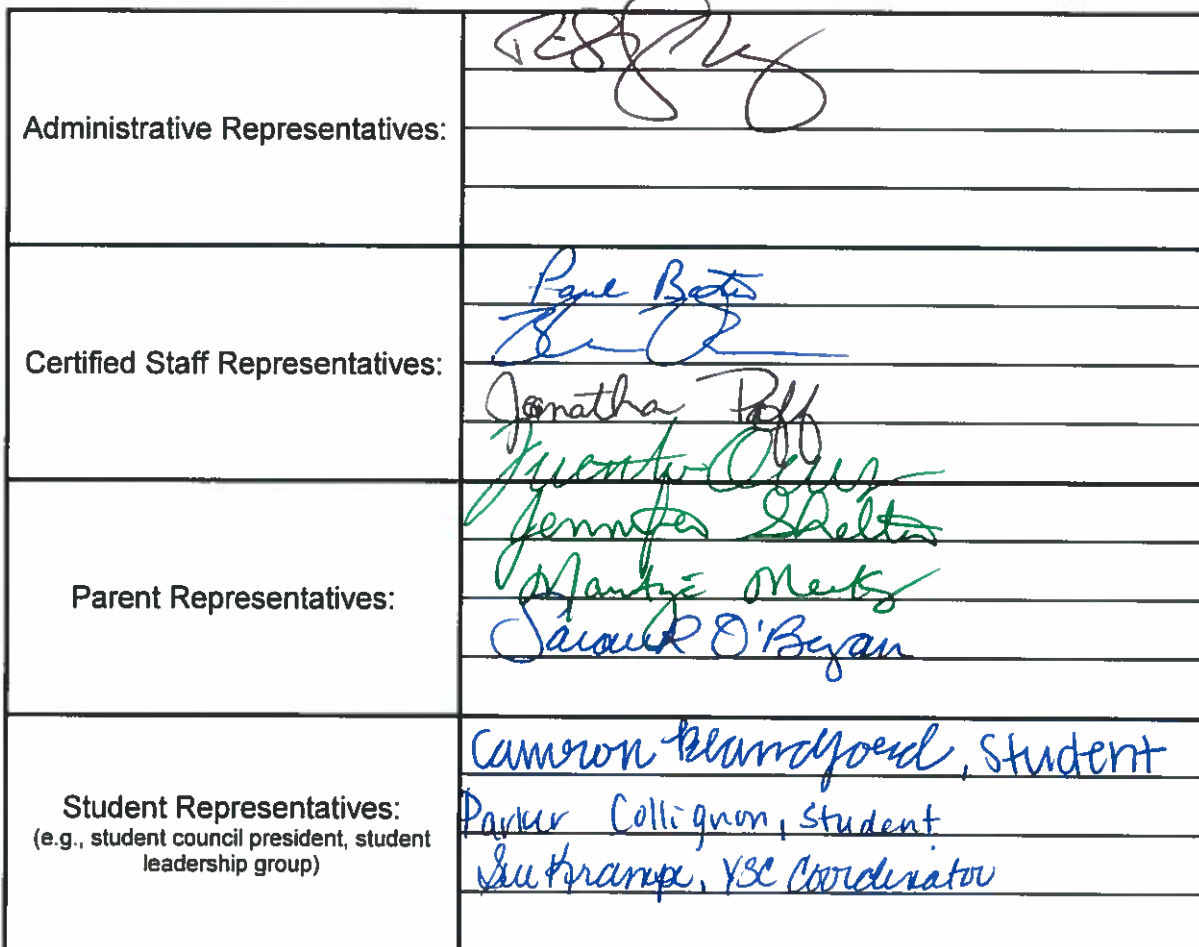 Administrative Representatives:
Certified Staff Representatives:
Paul Bates
Jonatha Poff
Parent Representatives:
Jennifer Shelton
O'Bryan
Student Representatives:
(e.g., student council president, student
leadership group)
Cameron Blandford, Student
Parker Collignon, Student
Sue Krampe, YSC Coordinator